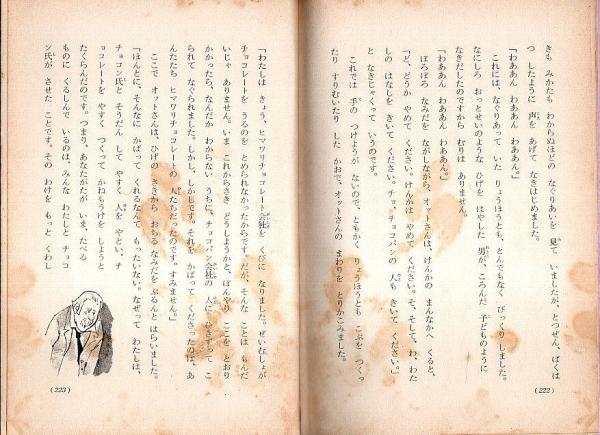 きも みかたも わからぬほどの なぐりあいを 見て いましたが、とつぜん、ばくは
つ したように 声を あげて なきはじめました。
「わああん わああん わああん。」
これには、なぐりあって いた りょうほうとも、とんでもなく びっくり しました。
なにしろ おっとせいのような ひげを はやした 男が、ころんだ 子どものように
なきだしたのですから むりは ありません。
「わああん わああん わああん。」
ぽろぽろ なみだを ながしながら、オットさんは、けんかの まんなかへ くると、
「ど、どうか やめて ください。けんかは やめて ください。そ、そして、わ、わた
しの はなしを きいて ください。チョ、チョコパンの 人も きいて ください。」
と なきじゃくって いうのです。
これでは 手の つけようが ないので、ともかく りょうほうとも こぶを つくっ
たり すりむいたり した かおで、オットさんの まわりを とりかこみました。
(222)
「わたしは きょう、ヒマワリチョコレート会社を くびに なりました。ぜいむしょが
チョコレートを うるのを とめられなかったからです。だが、そんな ことは もんだ
いじゃ ありません。いま これからさき どうしようかと、ぼんやり ここを とおり
かかったら、なんだか わからない うちに、チョコパン会社の 人に ひきずって こ
られて なぐられました。しかし、しかしです。それを かばって くださったのは、あ
んたたち ヒマワリチョコレートの 人たちだったのです。すみません。」
ここで オットさんは、ひげの さきから おちる なみだを ぶるんと はらいました。
「ほんとに、そんなに かばって くれるなんて もったいない。なぜって わたしは、
チョコン氏と そうだん して やすく 人を やとい、チ
ョコレートを やすく つくって かねもうけを しようと
たくらんだのです。つまり、あなたがたが いま、たべる
ものに くるしんで いるのは、みんな わたしと チョコ
ン氏が させた ことです。その わけを もっと くわし
(223)